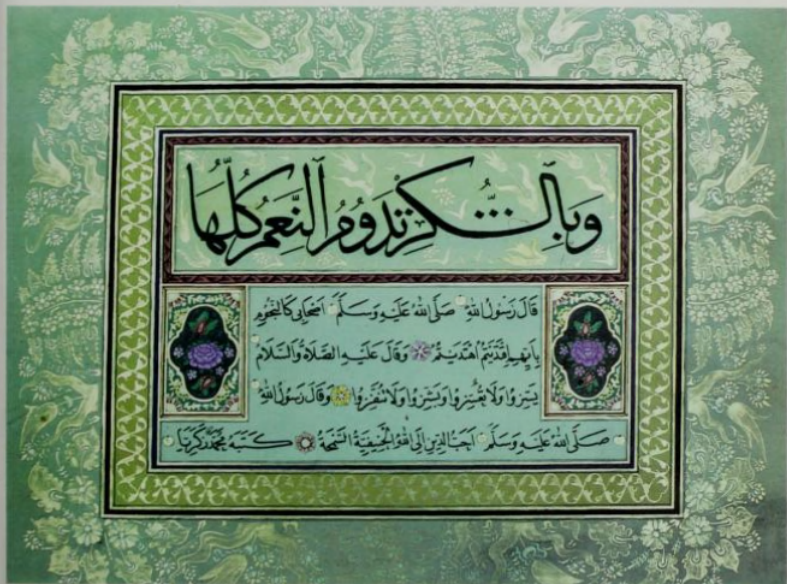 وَبِالشُّكْرِ تَدُومُ النِّعَمُ كُلُّهَا
قَالَ رَسُولُ اللهِ صَلَّى اللهُ عَلَيْهِ وَسَلَّمَ اَصْحَابِى كَالنُّجُومِ
بِاَيِّهِمِ اقْتَدَيْتُمْ اهْتَدَيْتُمْ وَقَالَ عَلَيْهِ الصَّلَاةُ وَالسَّلَامُ
يَسِّرُوا وَلَا تُعَسِّرُوا وَبَشِّرُوا وَلَا تُنَفِّرُوا وَقَالَ رَسُولُ اللهِ
صَلَّى اللهُ عَلَيْهِ وَسَلَّمَ اَحَبُّ الدِّينِ اِلَى اللهِ الْحَنِيفِيَّةُ السَّمْحَةُ كَتَبَهُ مُحَمَّد زَكَرِيَّا